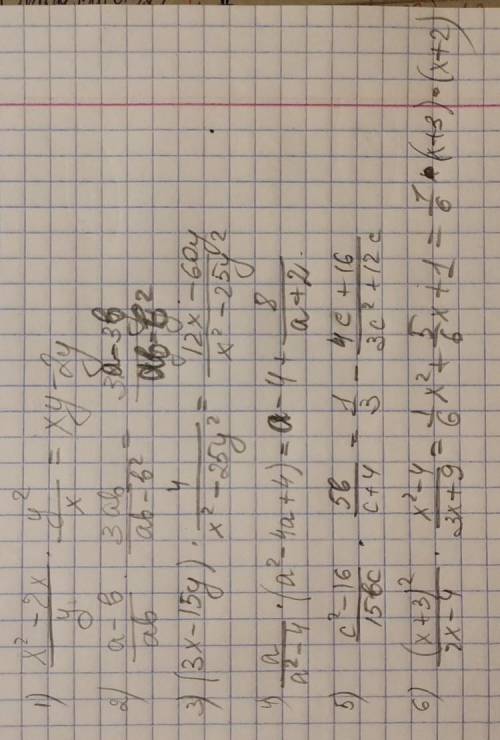 1) (x² - 2x)/y · y²/x = xy - 2y
2) (a - b)/ab · 3ab/(ab - b²) = (3a - 3b)/(ab - b²)
3) (3x - 15y) · 4/(x² - 25y²) = (12x - 60y)/(x² - 25y²)
4) a/(a² - 4) · (a² - 4a + 4) = a - 4 + 8/(a + 2)
5) (c² - 16)/15bc · 5b/(c + 4) = 1/3 - (4c + 16)/(3c² + 12c)
6) (x + 3)²/(2x - 4) · (x² - 4)/(3x + 9) = 1/6 x² + 5/6 x + 1 = 1/6 · (x + 3) · (x + 2)